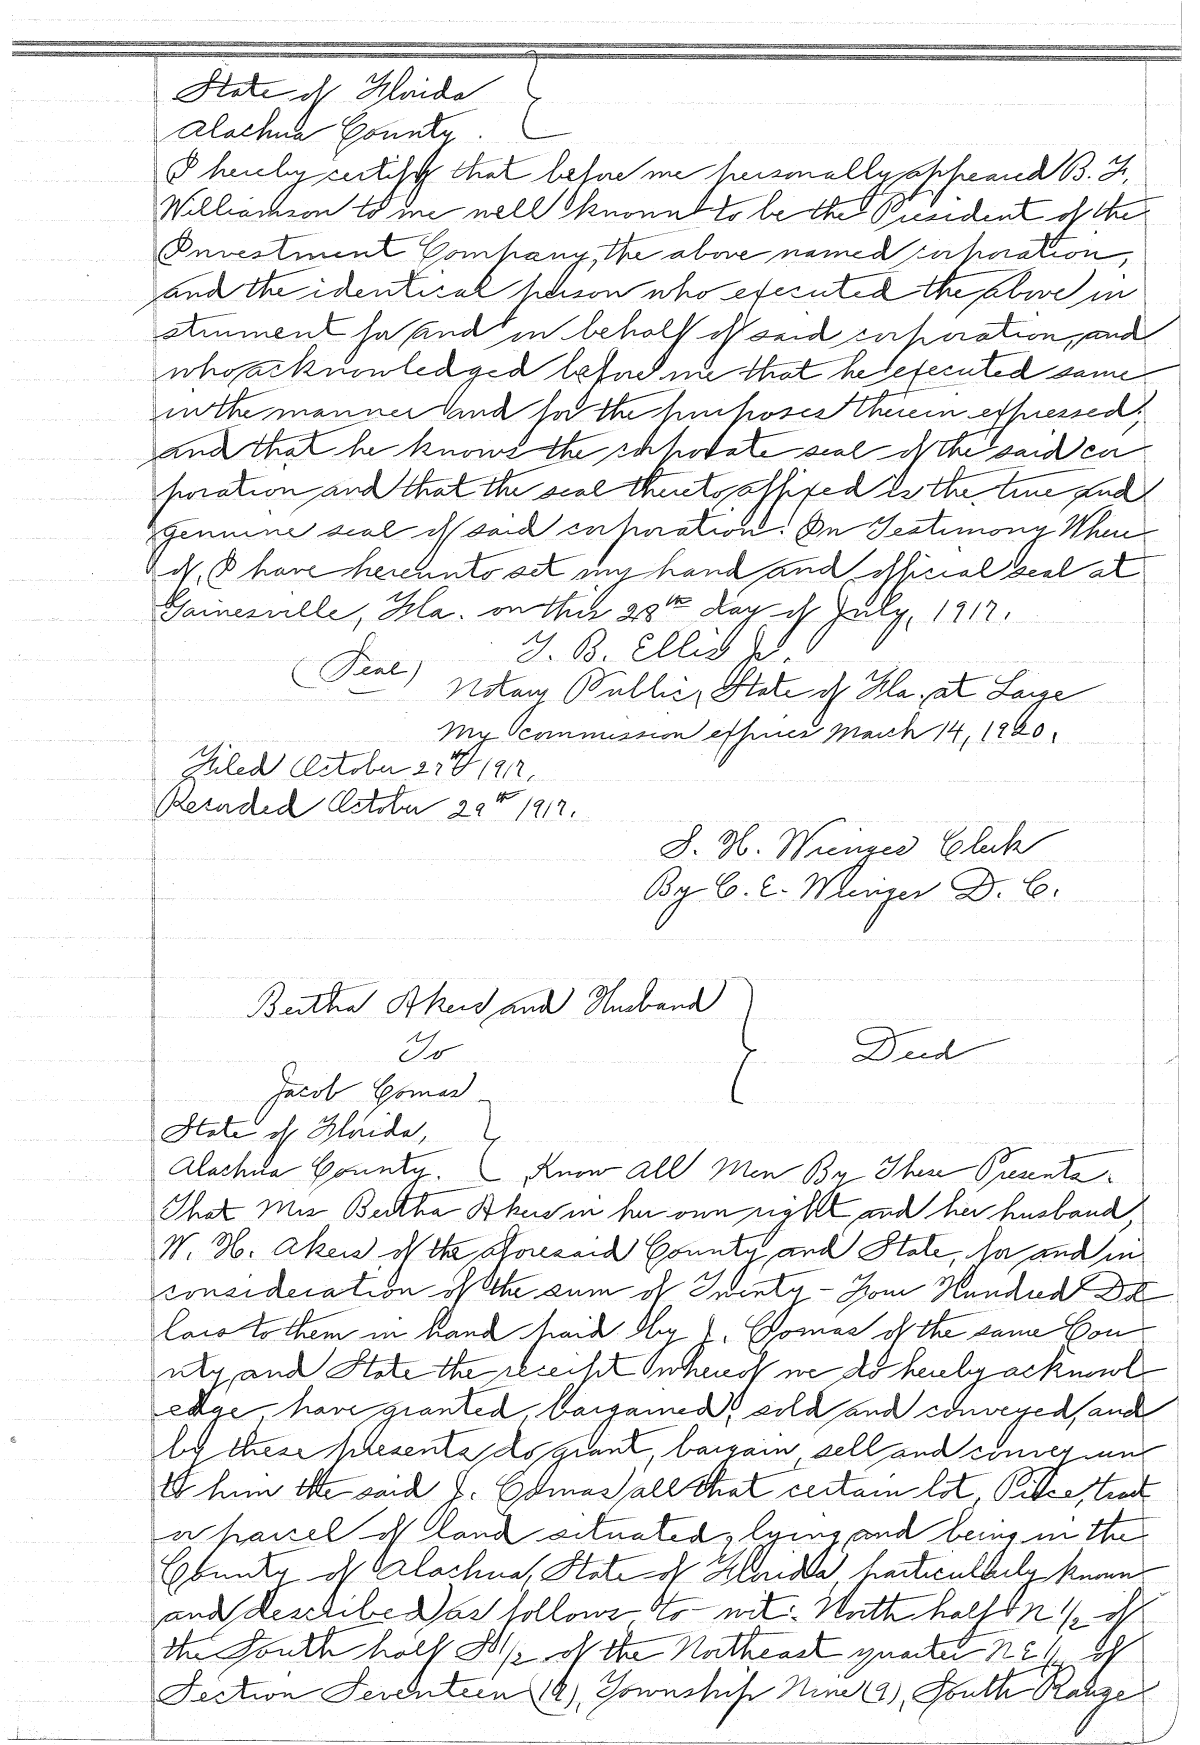 State of Florida
Alachua County.
I hereby certify that before me personally appeared B. F.
Williamson to me well known to be the President of the
Investment Company, the above named corporation,
and the identical person who executed the above in
strument for and in behalf of said corporation, and
who acknowledged before me that he executed same
in the manner and for the purposes therein expressed;
and that he knows the corporate seal of the said cor
poration and that the seal thereto affixed is the true and
genuine seal of said corporation. In Testimony Where
of, I have hereunto set my hand and official seal at
Gainesville, Fla. on this 28th day of July, 1917.
T. B. Ellis Jr.
(Seal) Notary Public, State of Fla. at Large
My commission expires March 14, 1920.
Filed October 27th 1917.
Recorded October 29th 1917.
S. H. Wienges Clerk
By C. E. Wienges D. C.
Bertha Akers and Husband
To Deed
Jacob Comas
State of Florida,
Alachua County. Know All Men By These Presents.
That Mrs Bertha Akers in her own right and her husband,
W. H. Akers of the aforesaid County and State, for and in
consideration of the sum of Twenty-Four Hundred Dol
lars to them in hand paid by J. Comas of the same Cou
nty and State the receipt whereof we do hereby acknowl
edge, have granted, bargained, sold and conveyed, and
by these presents do grant, bargain, sell and convey un
to him the said J. Comas all that certain lot, Piece, tract
or parcel of land situated, lying and being in the
County of Alachua, State of Florida, particularly known
and described as follows, to wit: North half N 1/2 of
the South half S 1/2 of the Northeast quarter NE 1/4 of
Section Seventeen (17), Township Nine (9), South Range